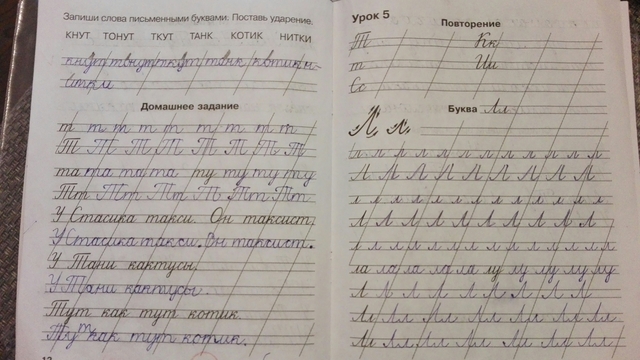 Запиши слова письменными буквами. Поставь ударение.
КНУТ ТОНУТ ТКУТ ТАНК КОТИК НИТКИ
кнут тонут ткут танк котик ни-
тки
Домашнее задание
т т т т т т т т
Т Т Т Т Т Т Т Т
та та та та ту ту ту ту
Тт Тт Тт Тт Тт Тт
У Стасика такси. Он таксист.
У Стасика такси. Он таксист.
У Тани кактусы.
У Тани кактусы.
Тут как тут котик.
Тут как тут котик.
Урок 5
Повторение
Т Кк
т Ии
Сс
Буква Лл
Л л
л л л л л л л л л л л л
Л Л Л Л Л Л Л Л Л
л л л л л л л л л л л л
Л Л Л Л Л Л Л Л Л
л л л л л л л л л л л л
ла ла ла ла ла лу лу лу лу лу
Л Л Л Л Л Л Л Л
Лл Лл Лл Лл Лл Лл Лл
Лл Лл Лл Лл Лл Лл Лл